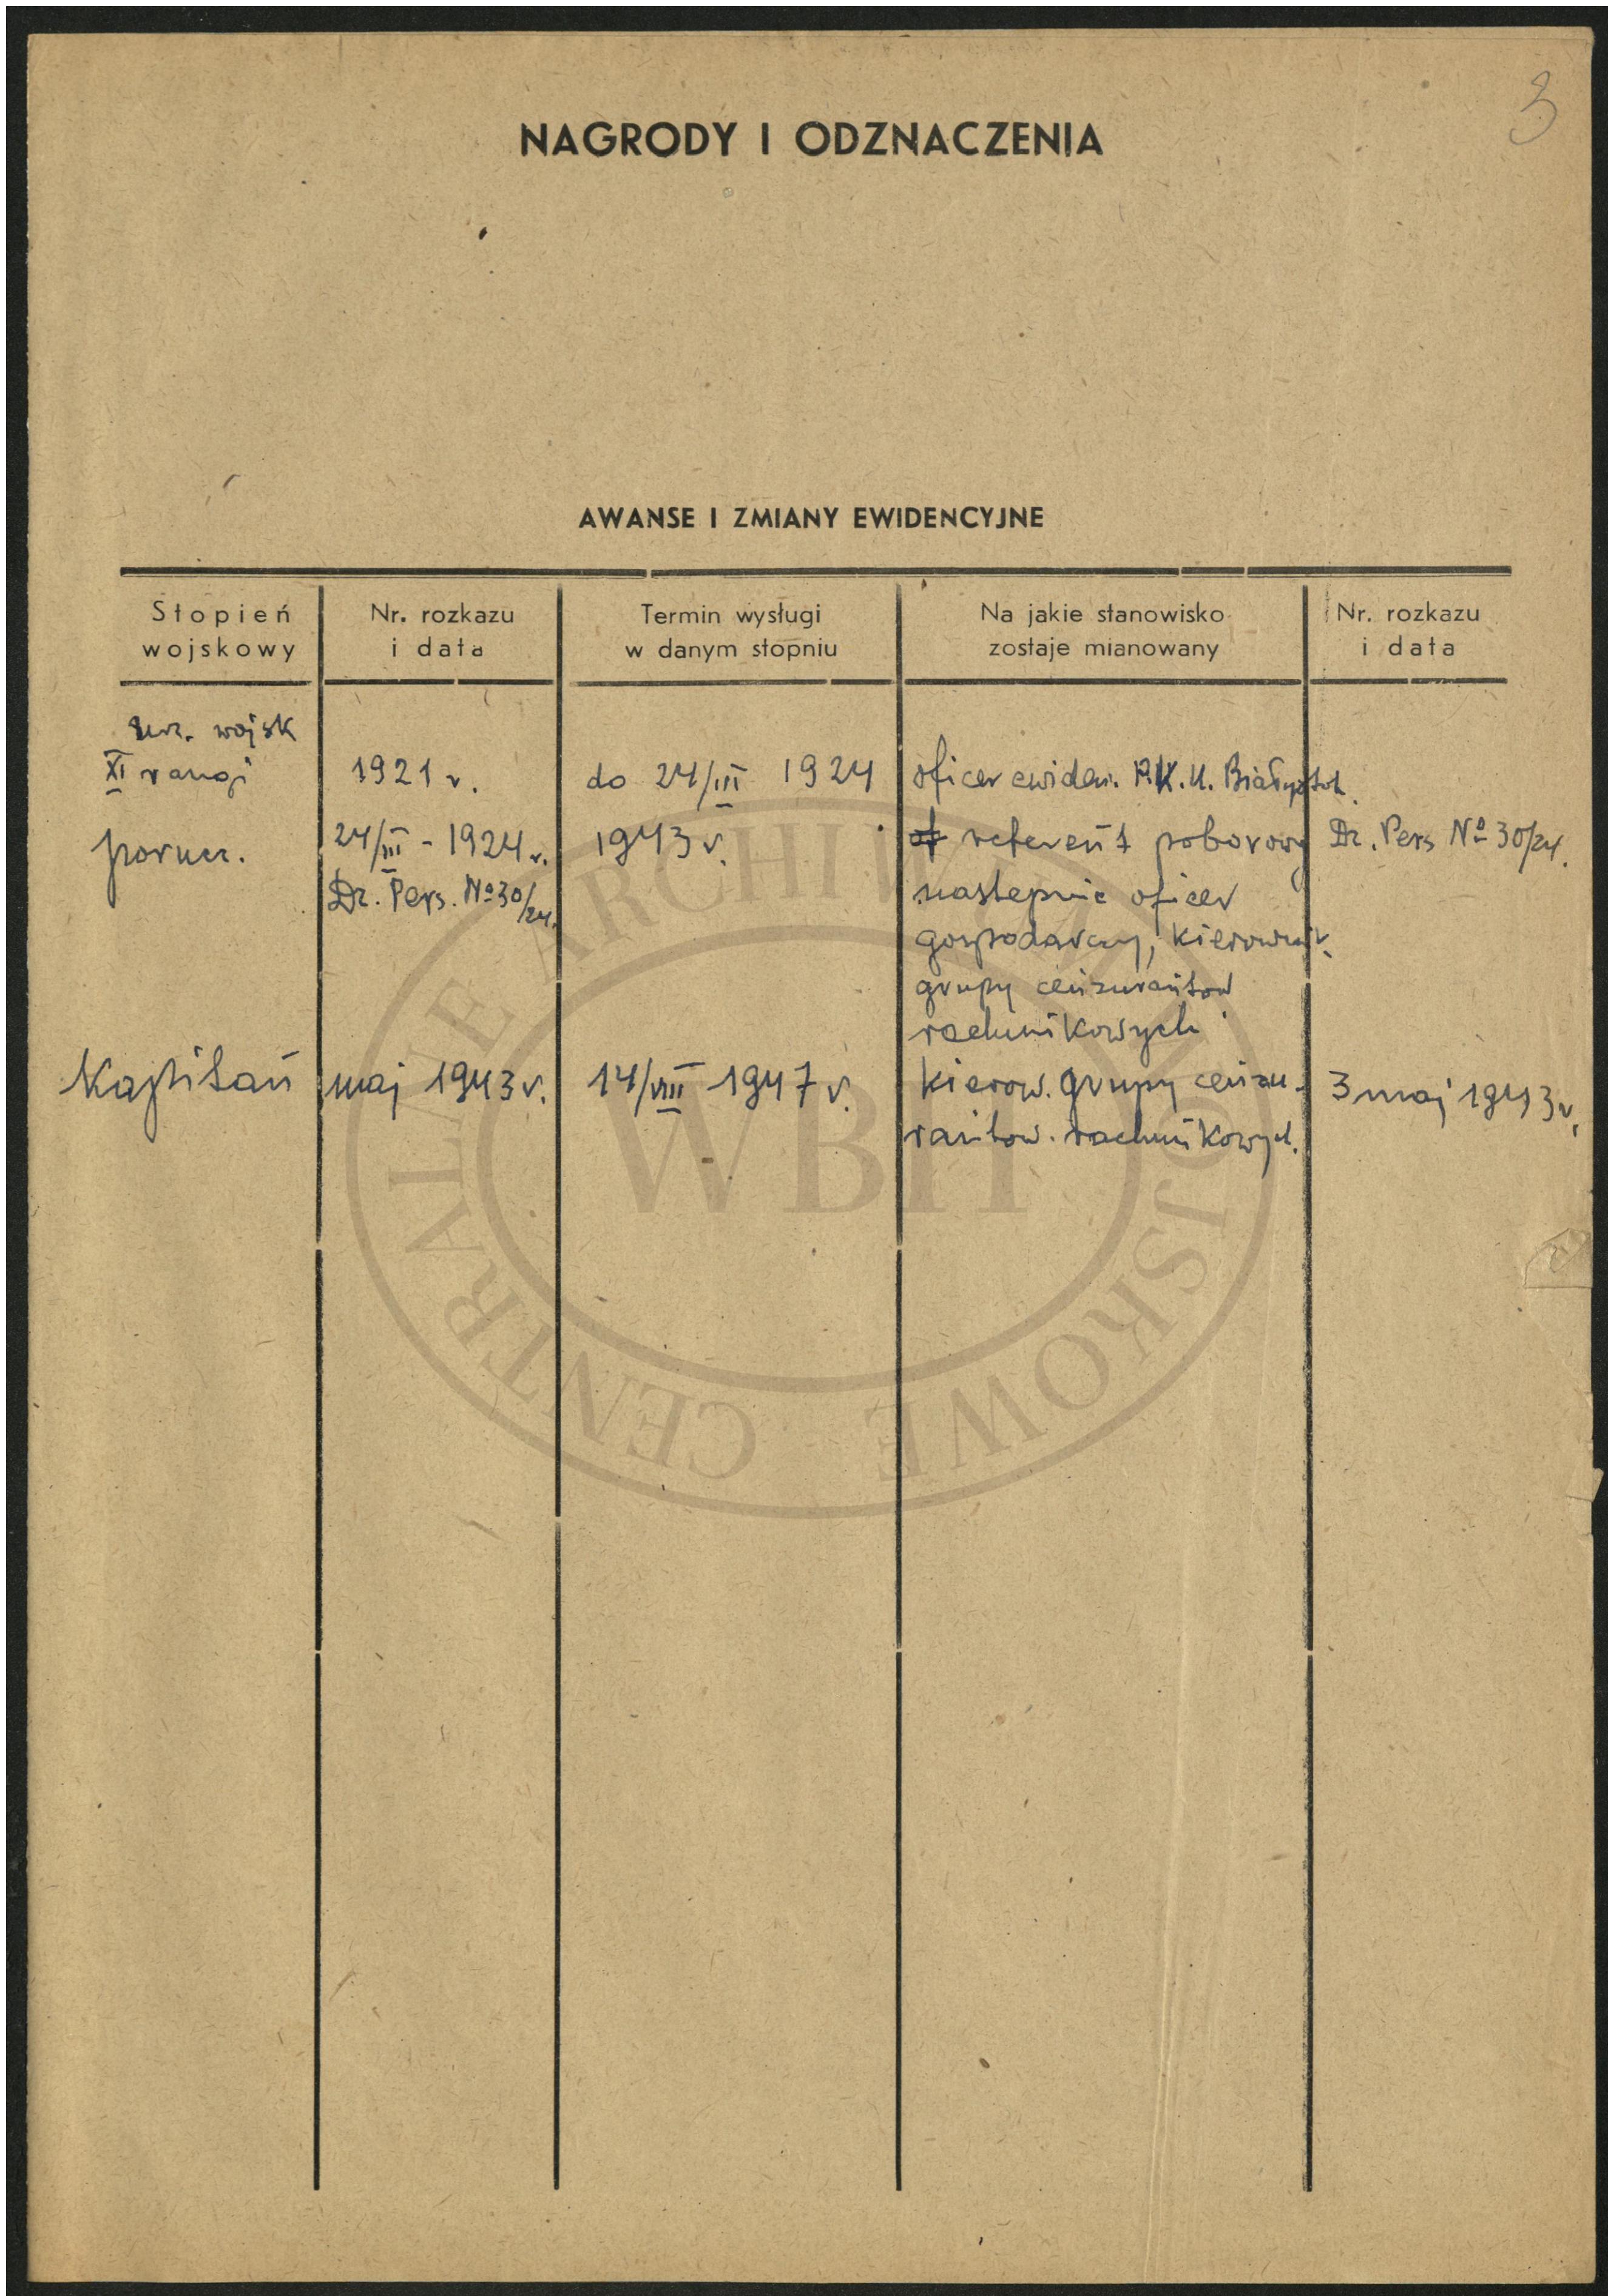 3
NAGRODY I ODZNACZENIA
AWANSE I ZMIANY EWIDENCYJNE
Stopień wojskowy
Nr. rozkazu i data
Termin wysługi w danym stopniu
Na jakie stanowisko zostaje mianowany
Nr. rozkazu i data
urz. wojsk
XI rangi 1921 r. do 24/III 1924 oficer ewiden. P.K.U. Białystok.
porucz. 24/III - 1924 r. 1943 r. referent poborowy Dz. Pers Nº 30/24.
Dz. Pers. Nº 30/24. następnie oficer
gospodarczy, kierownik
grupy cenzurantow
rachunikowych
Kapitan maj 1943 r. 14/VIII 1947 r. kierow. grupy cenzu- 3 maj 1943 r.
rantow. rachunikowych.
CENTRALNE ARCHIWUM WOJSKOWE
WBH